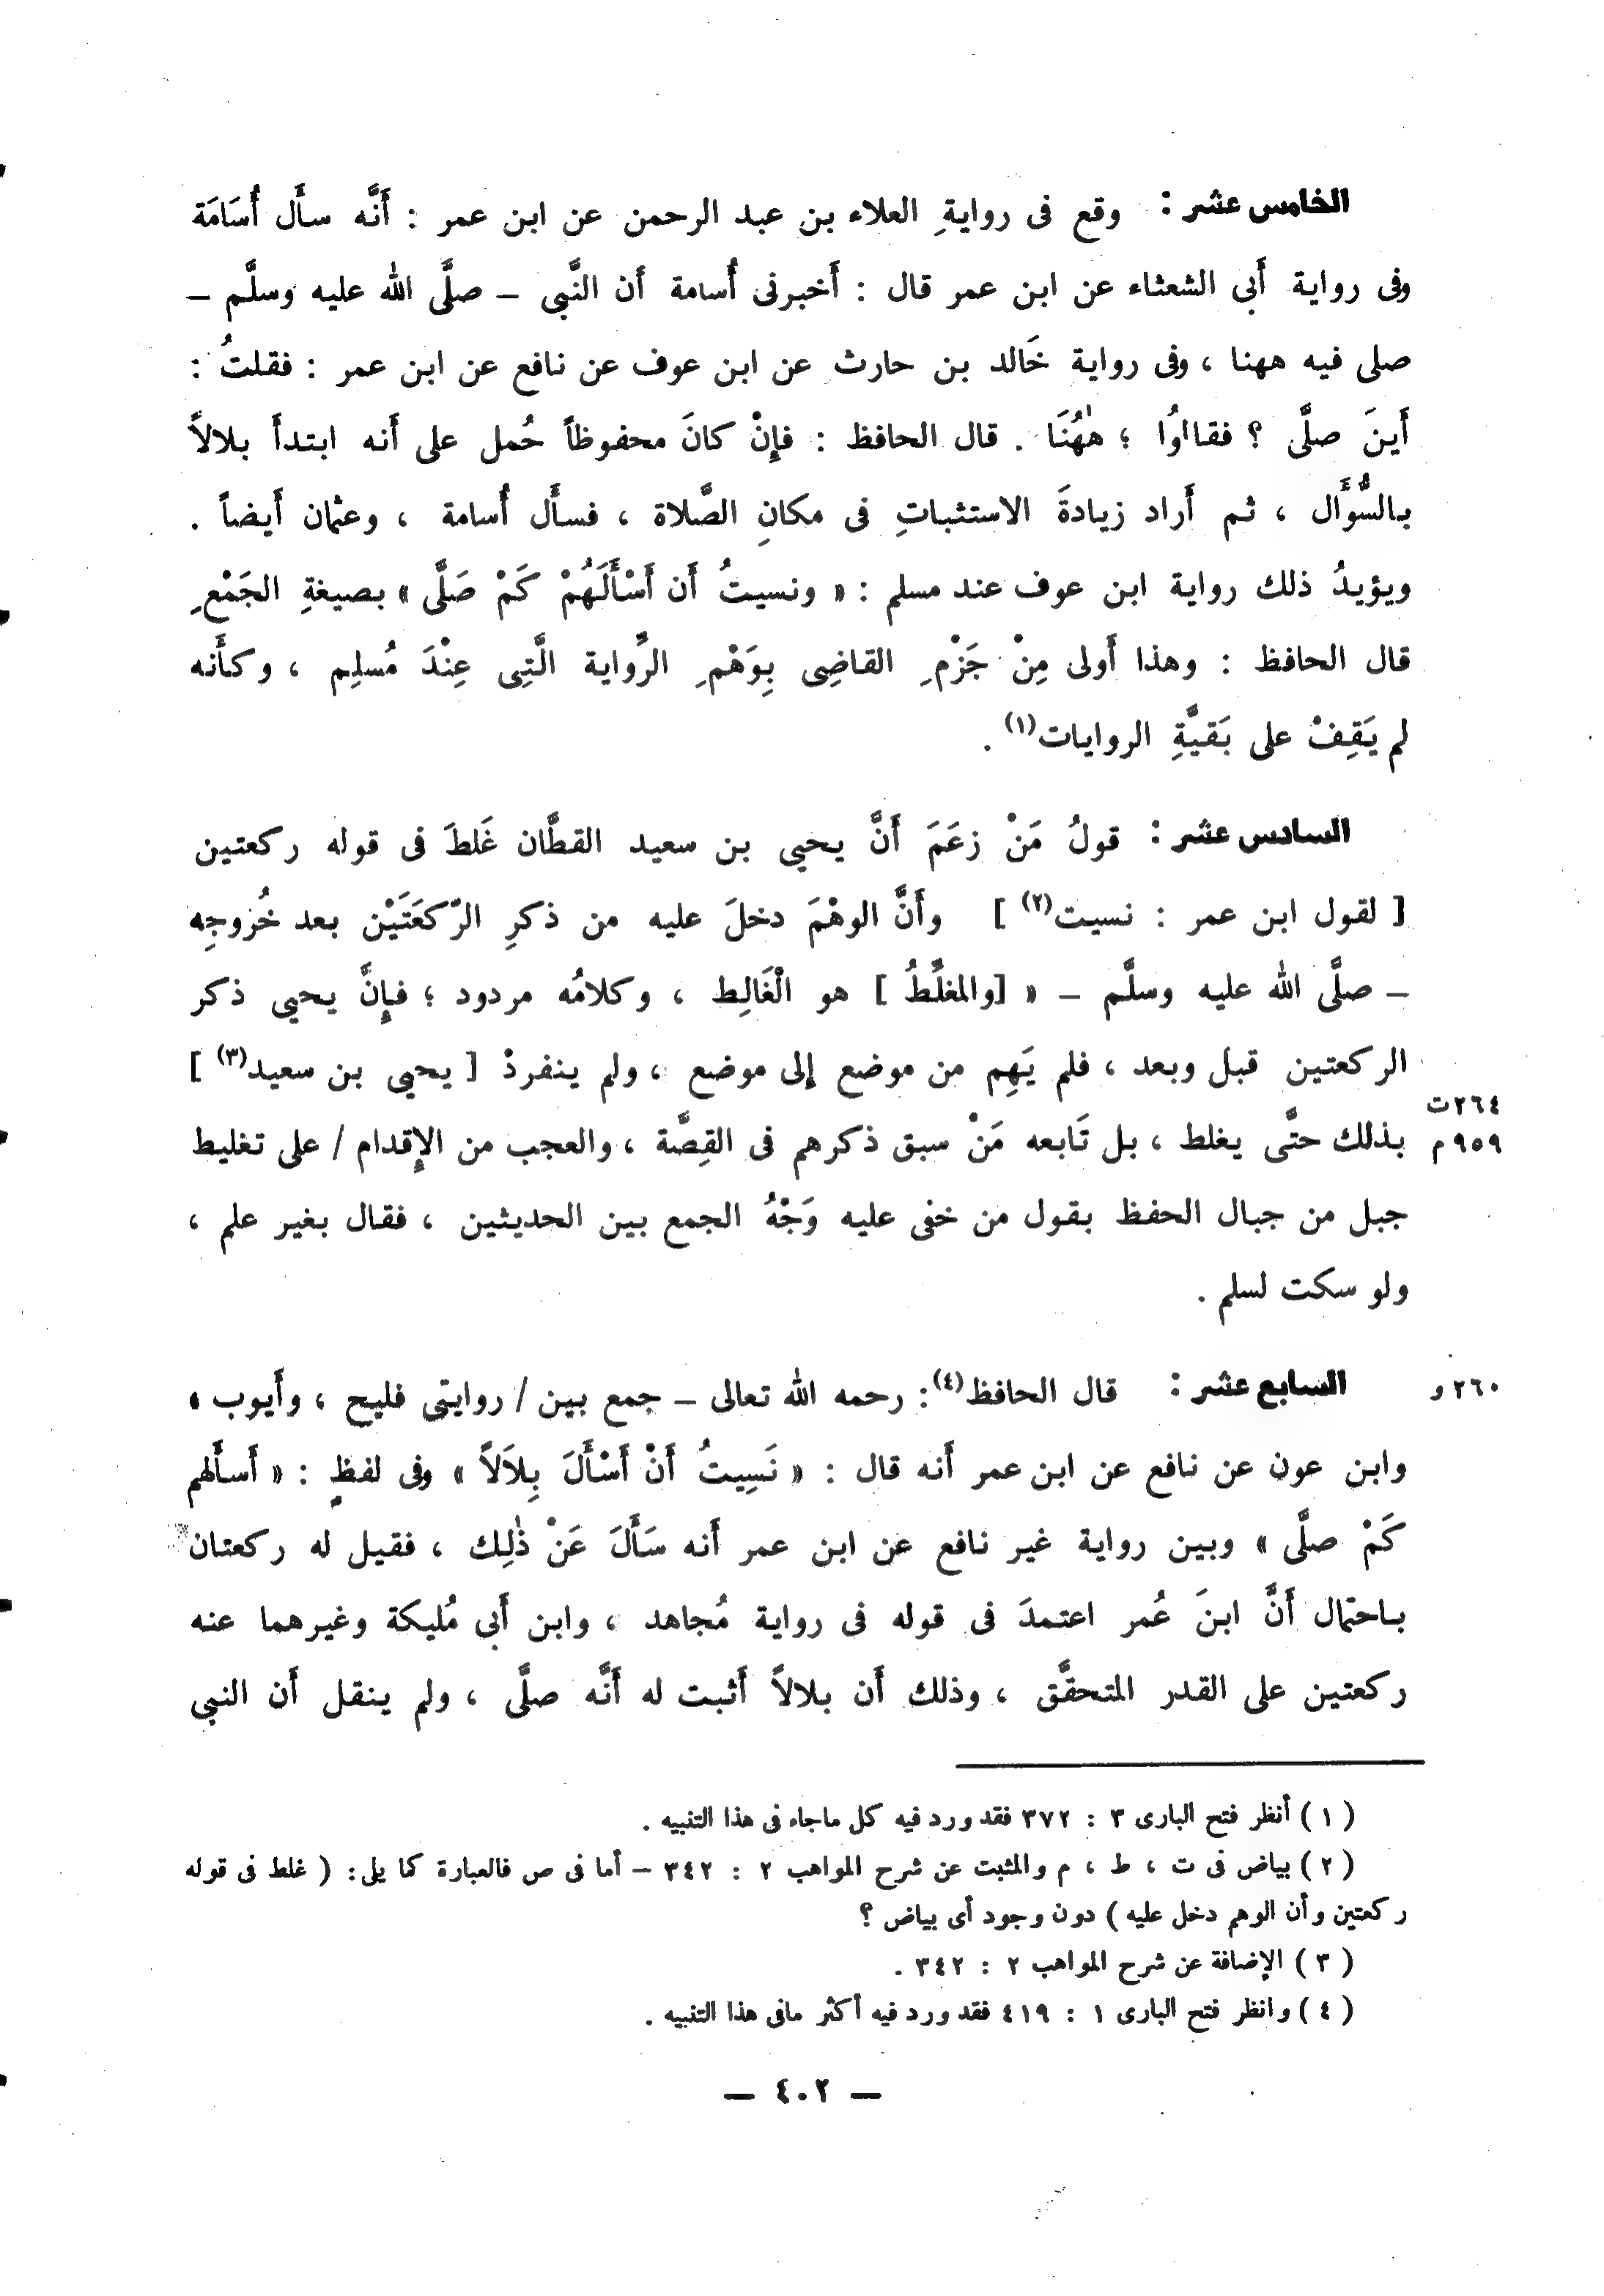 الخامس عشر : وقع فى روايةِ العلاء بن عبد الرحمن عن ابن عمر : أَنَّه سأَل أُسَامَة
وفى رواية أَبى الشعثاء عن ابن عمر قال : أَخبرنى أُسامة أن النَّبى – صلَّى الله عليه وسلَّم –
صلى فيه ههنا ، وفى رواية خَالد بن حارث عن ابن عوف عن نافع عن ابن عمر : فقلتُ :
أَينَ صلَّى ؟ فقالوُا ؛ هٰهُنَا . قال الحافظ : فإِنْ كانَ محفوظاً حُمل على أَنه ابتدأَ بلالاً
بالسُّؤَال ، ثم أَراد زيادةَ الاستثباتِ فى مكانِ الصَّلاة ، فسأَل أُسامة ، وعثمان أَيضاً .
ويؤيدُ ذلك رواية ابن عوف عند مسلم : « ونسيتُ أَن أَسْأَلَهُمْ كَمْ صَلَّى » بصيغةِ الجَمْعِ
قال الحافظ : وهذا أَولى مِنْ جَزْمِ القاضِى بِوَهْمِ الرِّواية الَّتِى عِنْدَ مُسلِم ، وكأَنه
لم يَقِفْ على بَقيَّةِ الروايات(١) .
السادس عشر : قولُ مَنْ زعَمَ أَنَّ يحيى بن سعيد القطَّان غَلطَ فى قوله ركعتين
[ لقول ابن عمر : نسيت(٢) ] وأَنَّ الوهْمَ دخلَ عليه من ذكرِ الرّكعَتَيْن بعد خُروجِه
– صلَّى الله عليه وسلَّم – « [والمغلِّطُ ] هو الْغَالِط ، وكلامُه مردود ؛ فإِنَّ يحيى ذكر
الركعتين قبل وبعد ، فلم يَهِم من موضع إلى موضع ، ولم ينفردْ [ يحيى بن سعيد(٣) ]
٢٦٤ت
٩٥٩م
بذلك حتَّى يغلط ، بل تَابعه مَنْ سبق ذكرهم فى القِصَّة ، والعجب من الإِقدام / على تغليط
جبل من جبال الحفظ بقول من خفى عليه وَجْهُ الجمع بين الحديثين ، فقال بغير علم ،
ولو سكت لسلم .
٢٦٠و
السابع عشر : قال الحافظ(٤): رحمه الله تعالى – جمع بين / روايتى فليح ، وأَيوب ،
وابن عون عن نافع عن ابن عمر أَنه قال : « نَسِيتُ أَنْ أَسْأَلَ بِلاَلاً » وفى لفظٍ : « أَسأَلهم
كَمْ صلَّى » وبين رواية غير نافع عن ابن عمر أَنه سَأَلَ عَنْ ذٰلِك ، فقيل له ركعتان
باحتمال أَنَّ ابنَ عُمر اعتمدَ فى قوله فى رواية مُجاهد ، وابن أَبى مُليكة وغيرهما عنه
ركعتين على القدر المتحقَّق ، وذلك أَن بلالاً أَثبت له أَنَّه صلَّى ، ولم ينقل أَن النبى
( ١ ) أنظر فتح البارى ٣ : ٣٧٢ فقد ورد فيه كل ماجاء فى هذا التنبيه .
( ٢ ) بياض فى ت ، ط ، م والمثبت عن شرح المواهب ٢ : ٣٤٢ – أما فى ص فالعبارة كما يلى: ( غلط فى قوله
ركعتين وأن الوهم دخل عليه ) دون وجود أى بياض ؟
( ٣ ) الإضافة عن شرح المواهب ٢ : ٣٤٢ .
( ٤ ) وانظر فتح البارى ١ : ٤١٩ فقد ورد فيه أكثر مافى هذا التنبيه .
— ٤٠٢ —